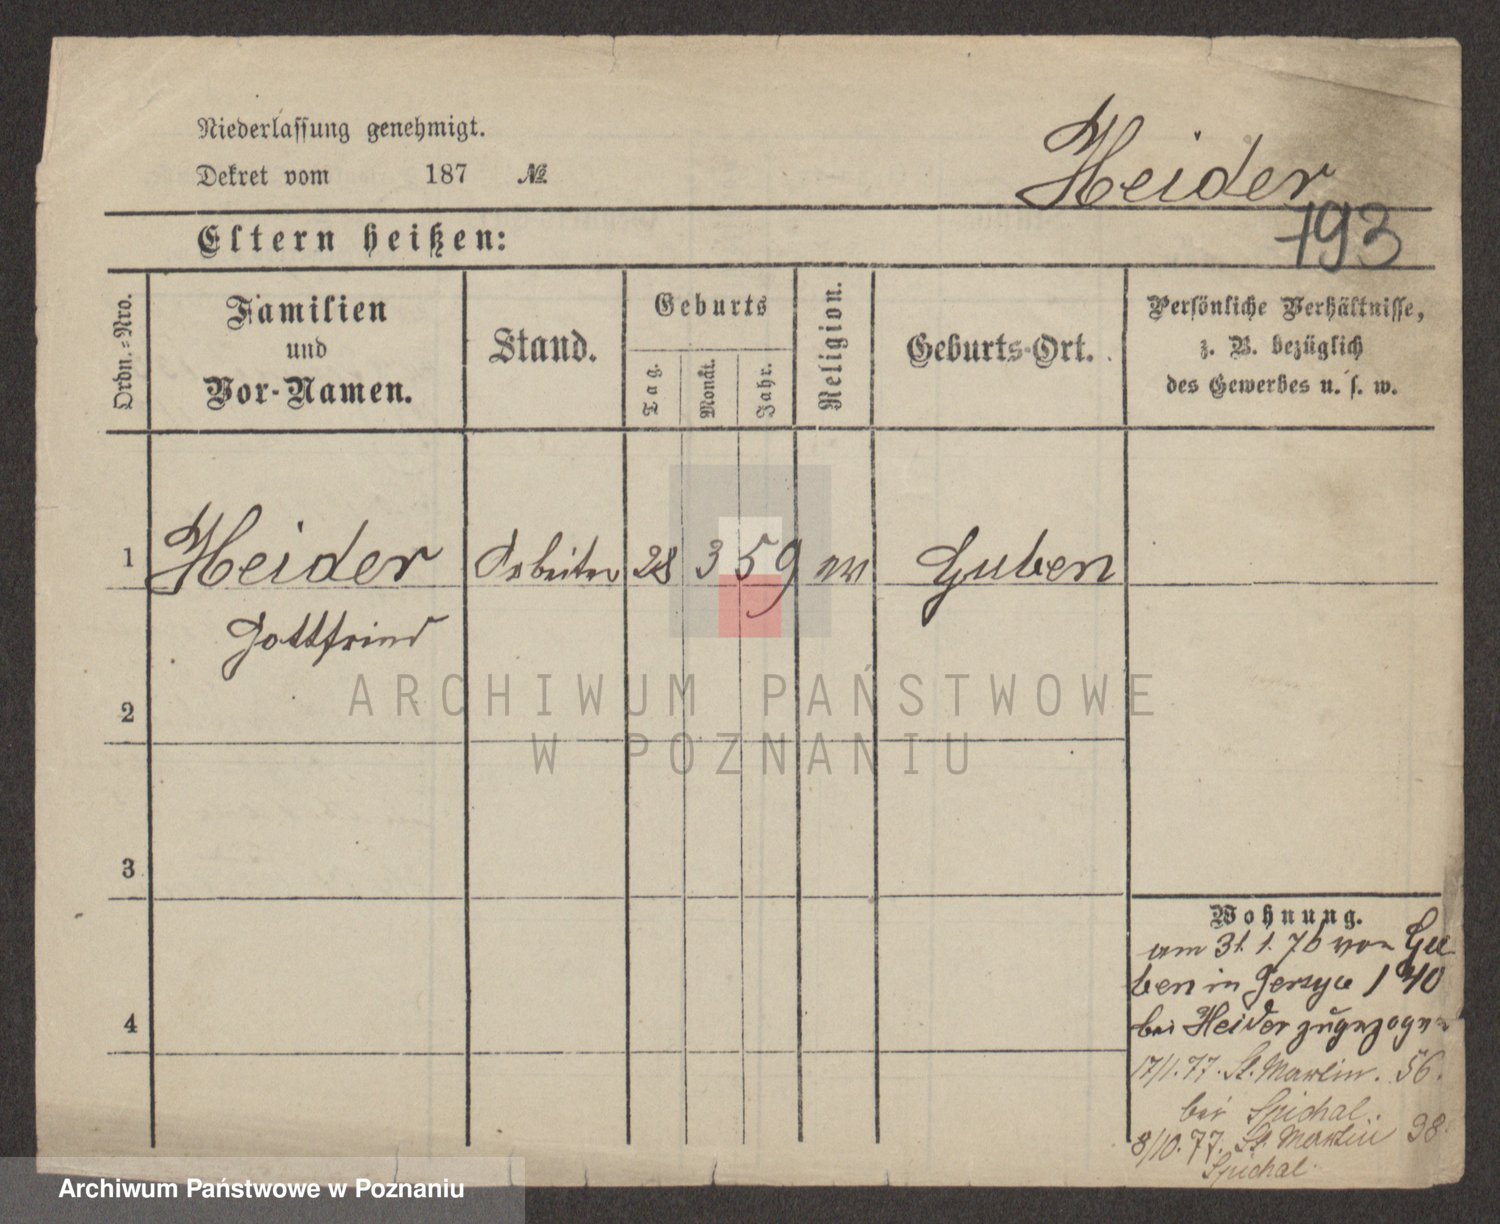 Niederlassung genehmigt.
Dekret vom 187 №
Heider
793
Eltern heißen:
Ordn.-Nro.
Familien
und
Vor-Namen.
Stand.
Geburts
Tag.
Monat.
Jahr.
Religion.
Geburts-Ort.
Persönliche Verhältnisse,
z. B. bezüglich
des Gewerbes u. s. w.
1 Heider Arbeiter 28 3 59 ev Guben
Gottfried
2
3
4
Wohnung.
am 31. 1. 76 von Gu-
ben in Jersyce 140
bei Heider zugezogen
17/1. 77. St. Martin. 56.
bei Spichal.
8/10. 77. St. Martin 98
Spichal.
ARCHIWUM PAŃSTWOWE
W POZNANIU
Archiwum Państwowe w Poznaniu